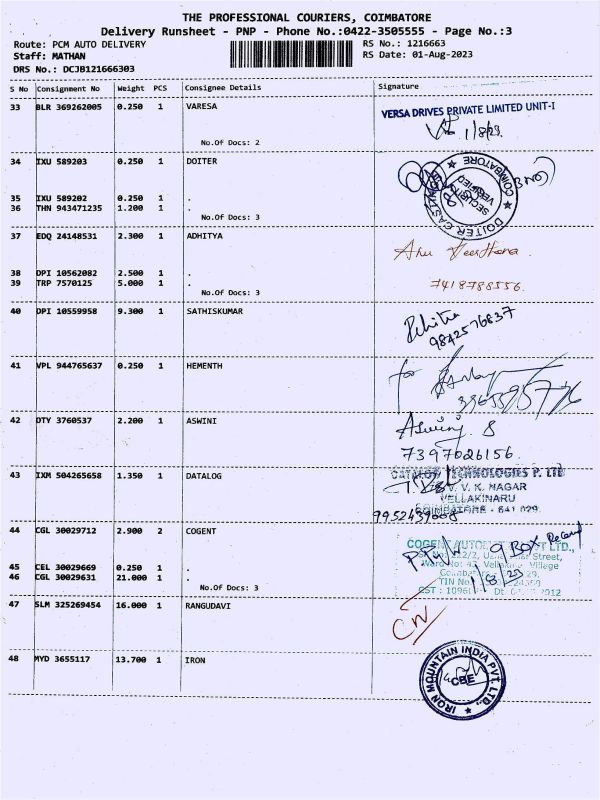 THE PROFESSIONAL COURIERS, COIMBATORE
Delivery Runsheet - PNP - Phone No.:0422-3505555 - Page No.:3
Route: PCM AUTO DELIVERY RS No.: 1216663
Staff: MATHAN RS Date: 01-Aug-2023
DRS No.: DCJB121666303
S No Consignment No Weight PCS Consignee Details Signature
33 BLR 369262005 0.250 1 VARESA
VERSA DRIVES PRIVATE LIMITED UNIT-I
1/8/23
No.Of Docs: 2
34 IXU 589203 0.250 1 DOITER
COIMBATORE
SECURITY
VERIFIED
DOITER CASTING
35 IXU 589202 0.250 1 .
36 THN 943471235 1.200 1 .
No.Of Docs: 3
37 EDQ 24148531 2.300 1 ADHITYA
38 DPI 10562082 2.500 1 .
7418788556.
39 TRP 7570125 5.000 1 .
No.Of Docs: 3
40 DPI 10559958 9.300 1 SATHISKUMAR
9842576837
41 VPL 944765637 0.250 1 HEMENTH
for
42 DTY 3760537 2.200 1 ASWINI
Aswini S
7397026156.
43 IXM 504265658 1.350 1 DATALOG
CATALOG TECHNOLOGIES P. LTD
V. K. NAGAR
VELLAKINARU
COIMBATORE - 641 029.
9952439008
44 CGL 30029712 2.900 2 COGENT
9 BOX Received
P.P.W
1/8/23
45 CEL 30029669 0.250 1 .
46 CGL 30029631 21.000 1 .
No.Of Docs: 3
47 SLM 325269454 16.000 1 RANGUDAVI
48 MYD 3655117 13.700 1 IRON
IRON MOUNTAIN INDIA PVT. LTD.,
CBE